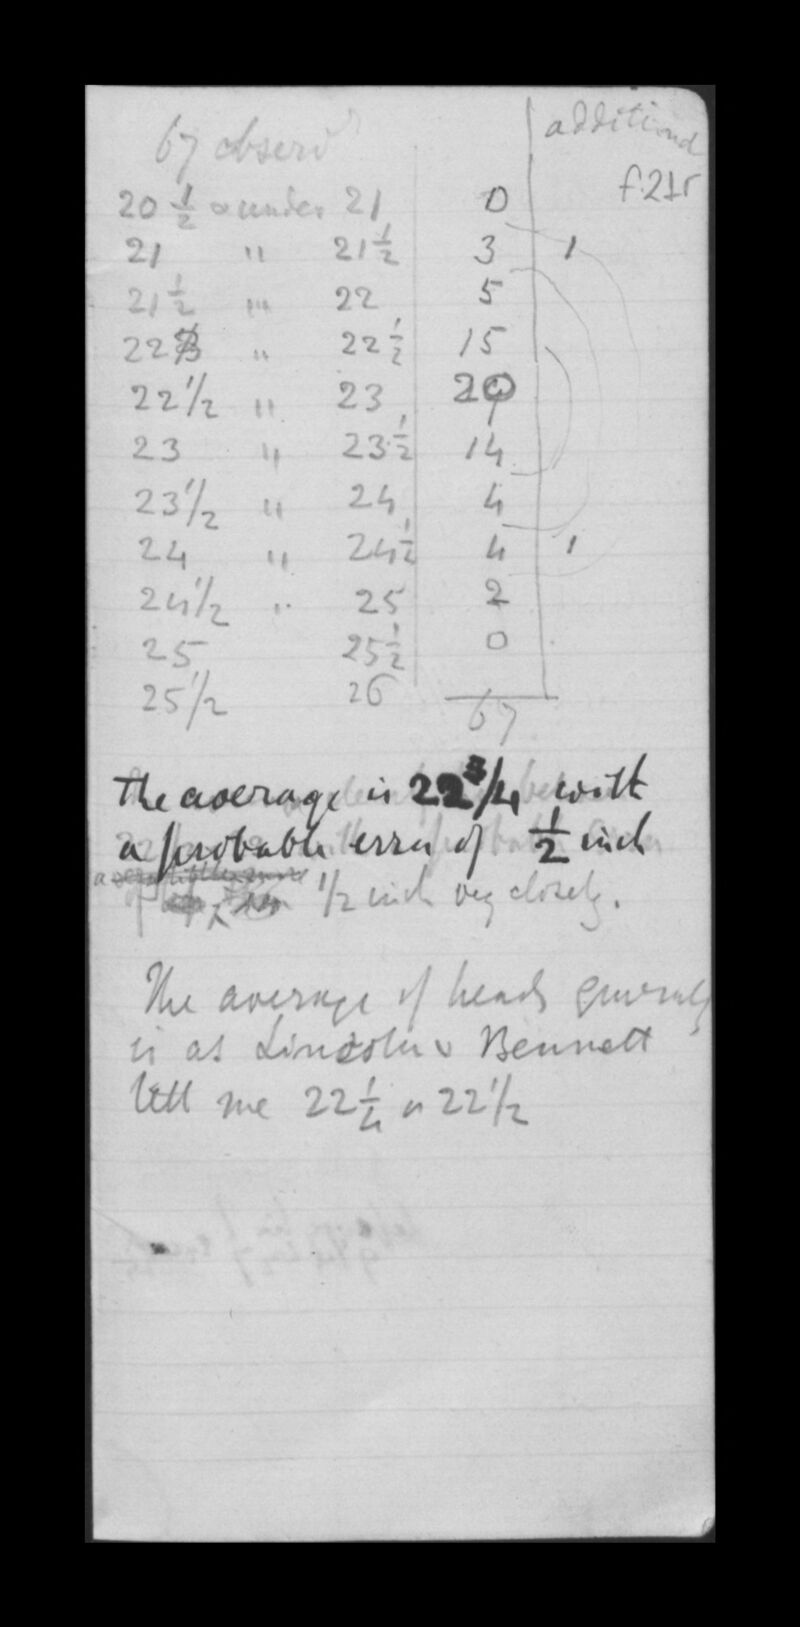 67 observ
additional
f.21r
20 1/2 & under 21 0
21 " 21 1/2 3 1
21 1/2 " 22 5
22 " 22 1/2 15
22 1/2 " 23 20
23 " 23 1/2 14
23 1/2 " 24 4
24 " 24 1/2 4 1
24 1/2 " 25 2
25 25 1/2 0
25 1/2 26
67
The average is 22 3/4 with
a probable error of 1/2 inch
of 1/2 inch very closely.
The average of heads generally
is as Lincoln & Bennett
tell me 22 1/4 or 22 1/2